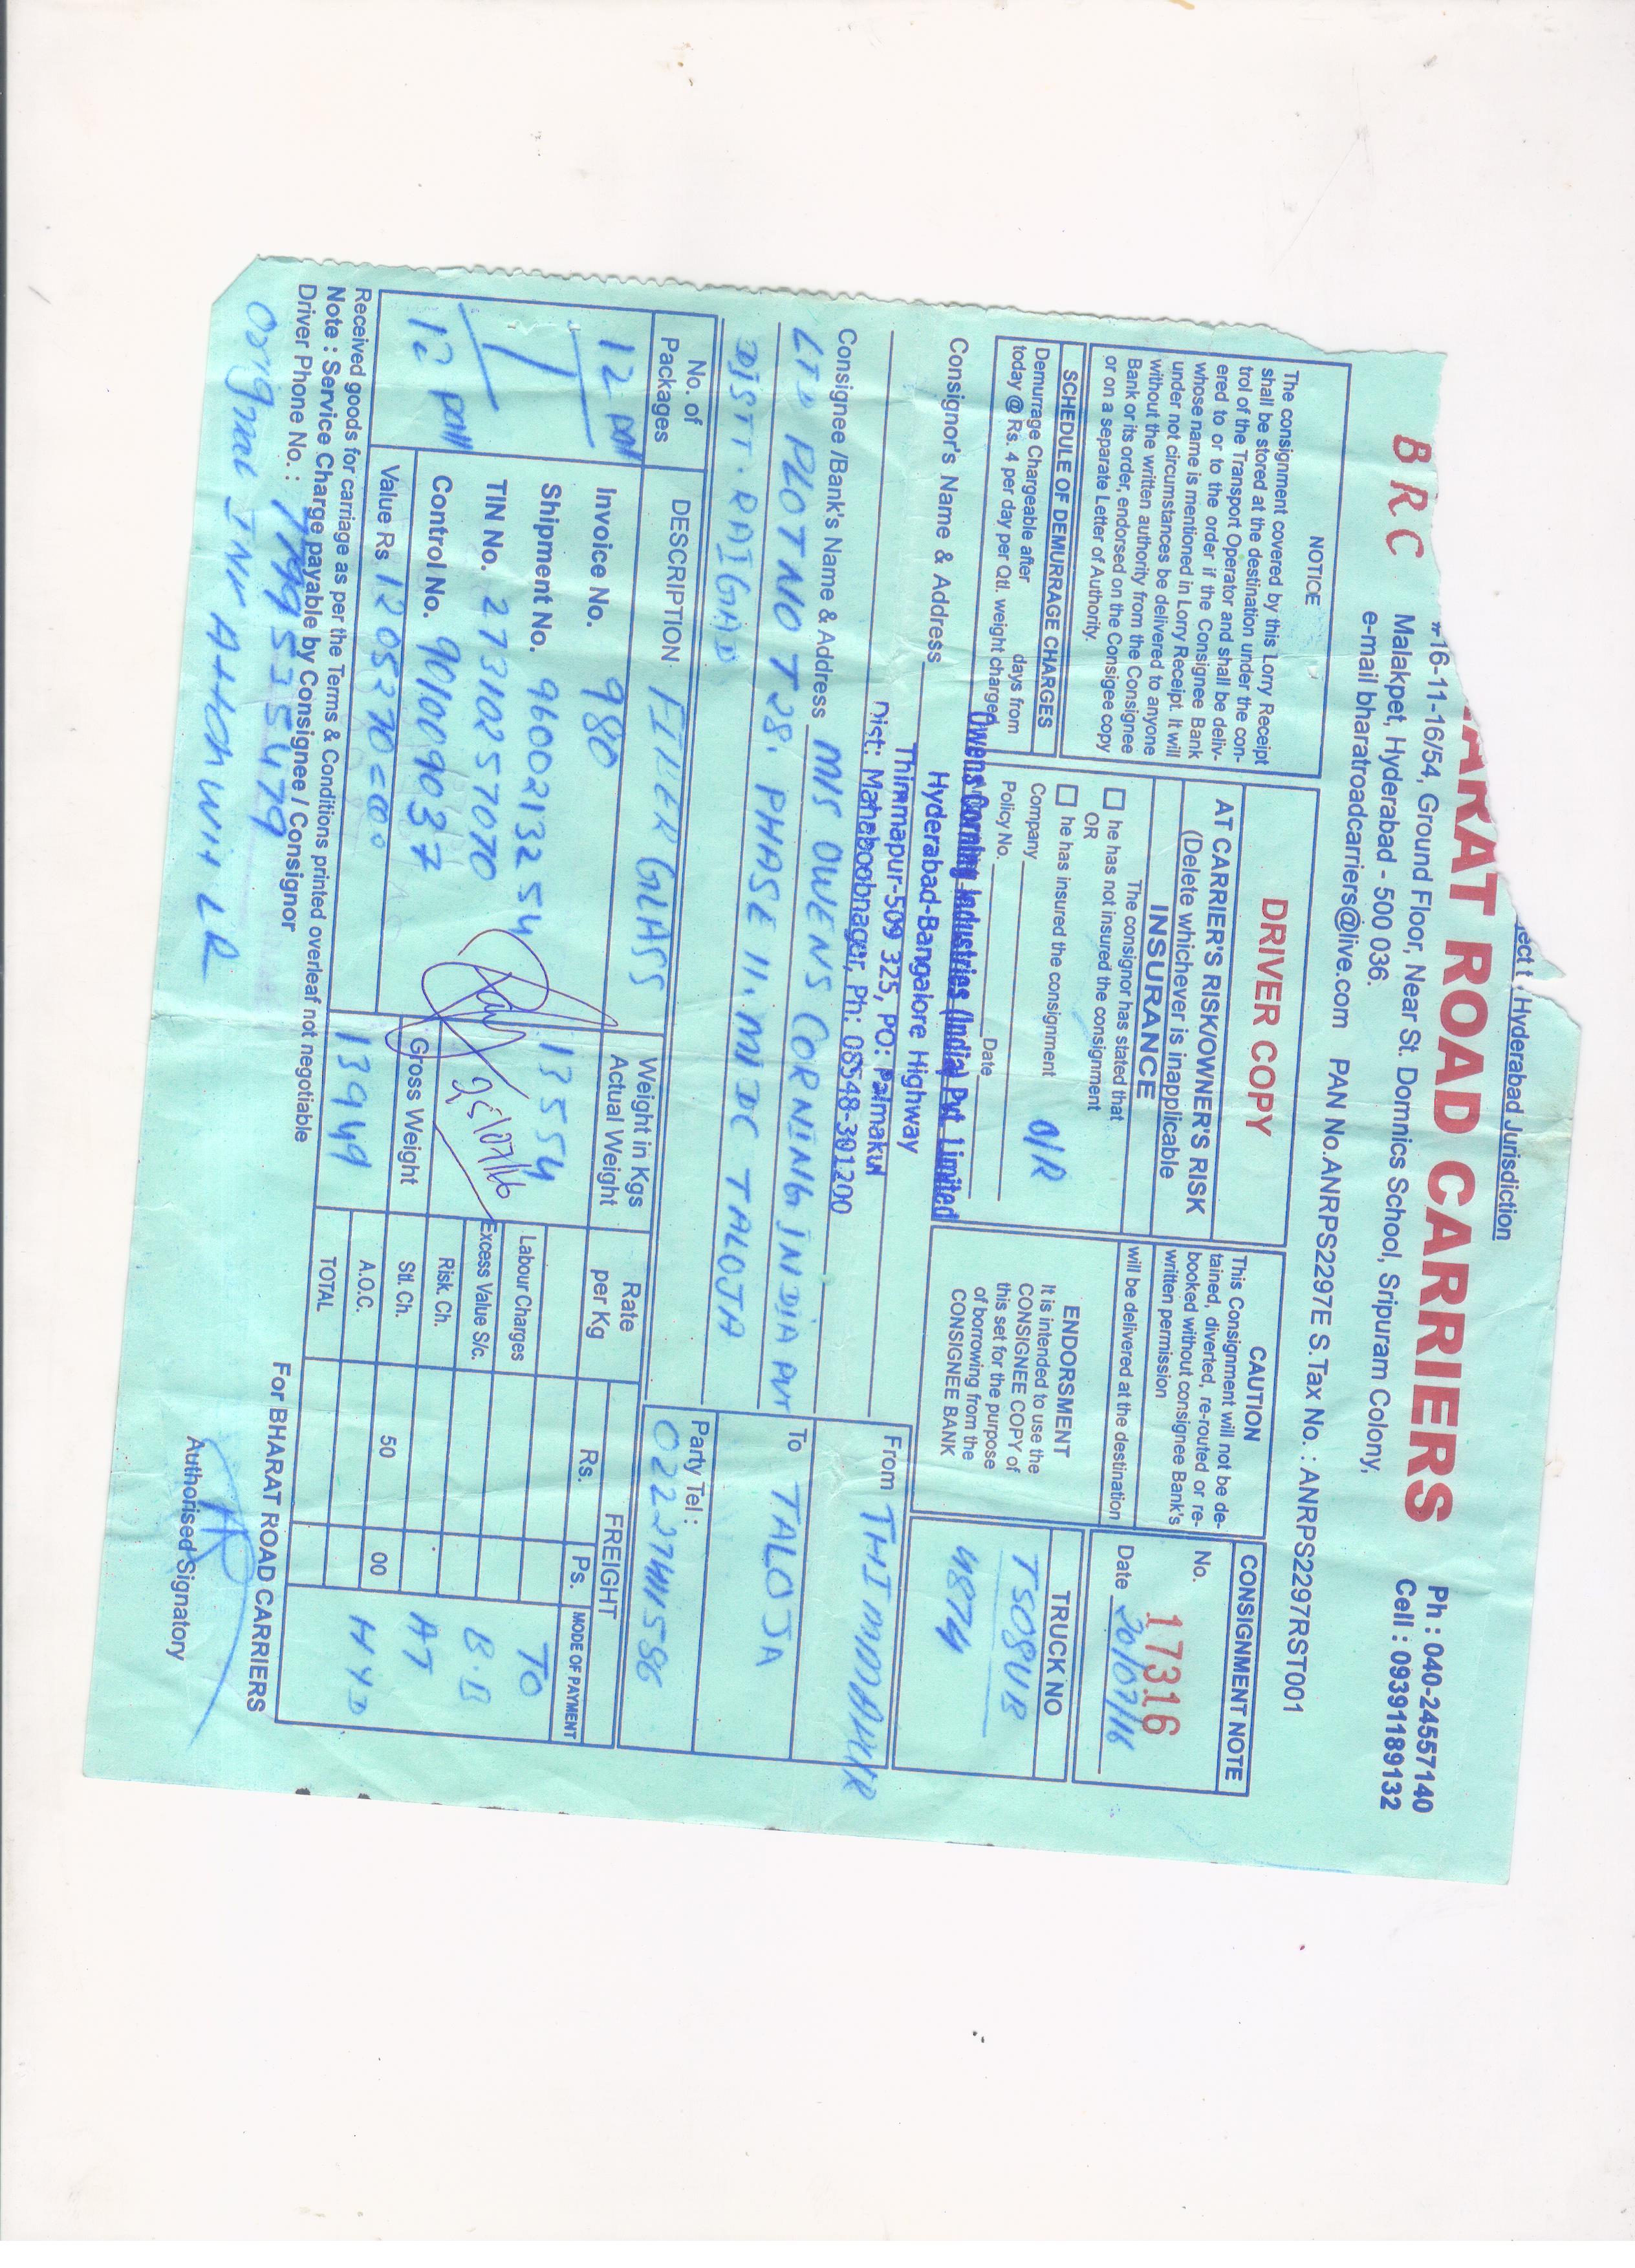 ject t Hyderabad Jurisdiction
ARAT ROAD CARRIERS
Ph : 040-24557140
Cell : 09391189132
B R C
#16-11-16/54, Ground Floor, Near St. Domnics School, Sripuram Colony,
Malakpet, Hyderabad - 500 036.
e-mail bharatroadcarriers@live.com PAN No.ANRPS2297E S.Tax No. : ANRPS2297RST001
NOTICE
The consignment covered by this Lorry Receipt
shall be stored at the destination under the con-
trol of the Transport Operator and shall be deliv-
ered to or to the order if the Consignee Bank
whose name is mentioned in Lorry Receipt. It will
under not circumstances be delivered to anyone
without the written authority from the Consignee
Bank or its order, endorsed on the Consigee copy
or on a separate Letter of Authority.
SCHEDULE OF DEMURRAGE CHARGES
Demurrage Chargeable after days from
today @ Rs. 4 per day per Qtl. weight charged
DRIVER COPY
AT CARRIER'S RISK/OWNER'S RISK
(Delete whichever is inapplicable
INSURANCE
The consignor has stated that
he has not insured the consignment
OR
he has insured the consignment
Company O/R
Policy No. Date
CAUTION
This Consignment will not be de-
tained, diverted, re-routed or re-
booked without consignee Bank's
written permission
will be delivered at the destination
ENDORSMENT
It is intended to use the
CONSIGNEE COPY of
this set for the purpose
of borrowing from the
CONSIGNEE BANK
CONSIGNMENT NOTE
No. 17316
Date 20/07/16
TRUCK NO
TS08UB
4874
Consignor's Name & Address Owens Corning Industries (India) Pvt Limited
Hyderabad-Bangalore Highway
Thimmapur-509 325, PO: Palmakul
Dist: Mahaboobnagar, Ph: 08548-301200
Consignee /Bank's Name & Address M/S OWENS CORNING INDIA PVT
LTD PLOT NO T 28. PHASE 11. MIDC TALOJA
DISTT. RAIGAD
From THIMMAPUR
To TALOJA
Party Tel :
No. of
Packages
DESCRIPTION FIBER GLASS
Weight in Kgs
Actual Weight
Rate
per Kg
FREIGHT
Rs. Ps.
MODE OF PAYMENT
12 pall
Invoice No. 980
13554
Shipment No. 9600213254
TIN No. 27310257070
Control No. 901009037
12 pall
Value Rs 1205370=00
25/07/16
Gross Weight
13949
Labour Charges
Excess Value S/c.
Risk. Ch.
Stl. Ch.
A.O.C. 50 00
TOTAL
TO
B.B
AT
HYD
Received goods for carriage as per the Terms & Conditions printed overleaf not negotiable
Note : Service Charge payable by Consignee / Consignor
Driver Phone No. :
For BHARAT ROAD CARRIERS
Original INV Attach with LR
Authorised Signatory